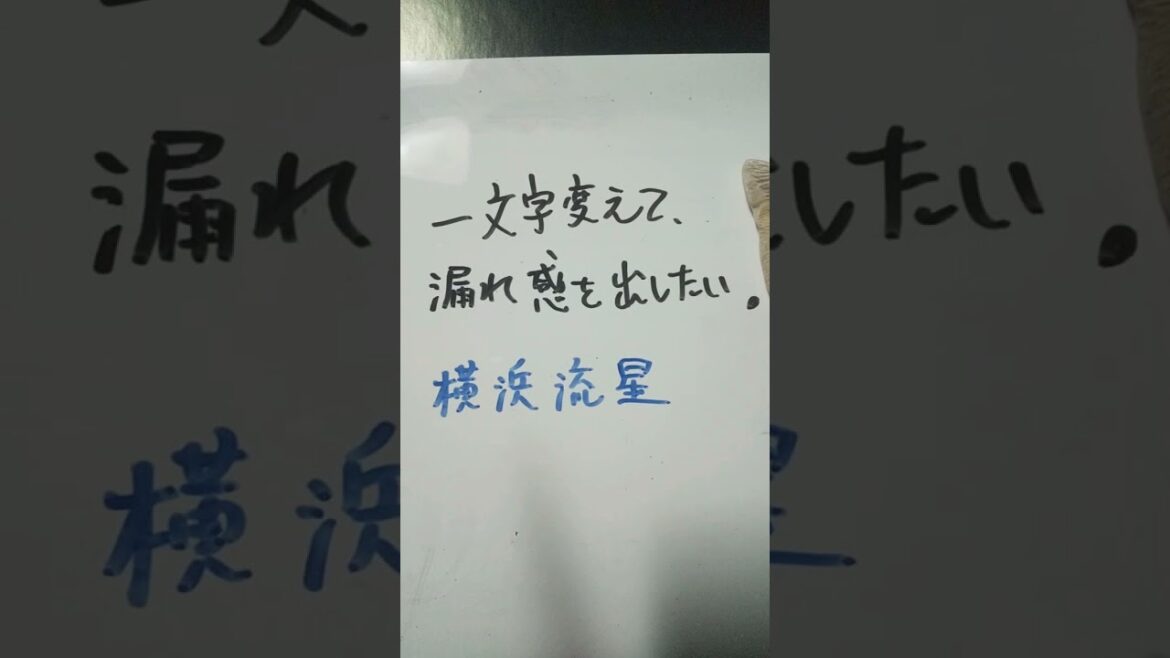 一文字変えて、
漏れ感を出したい。
横浜流星